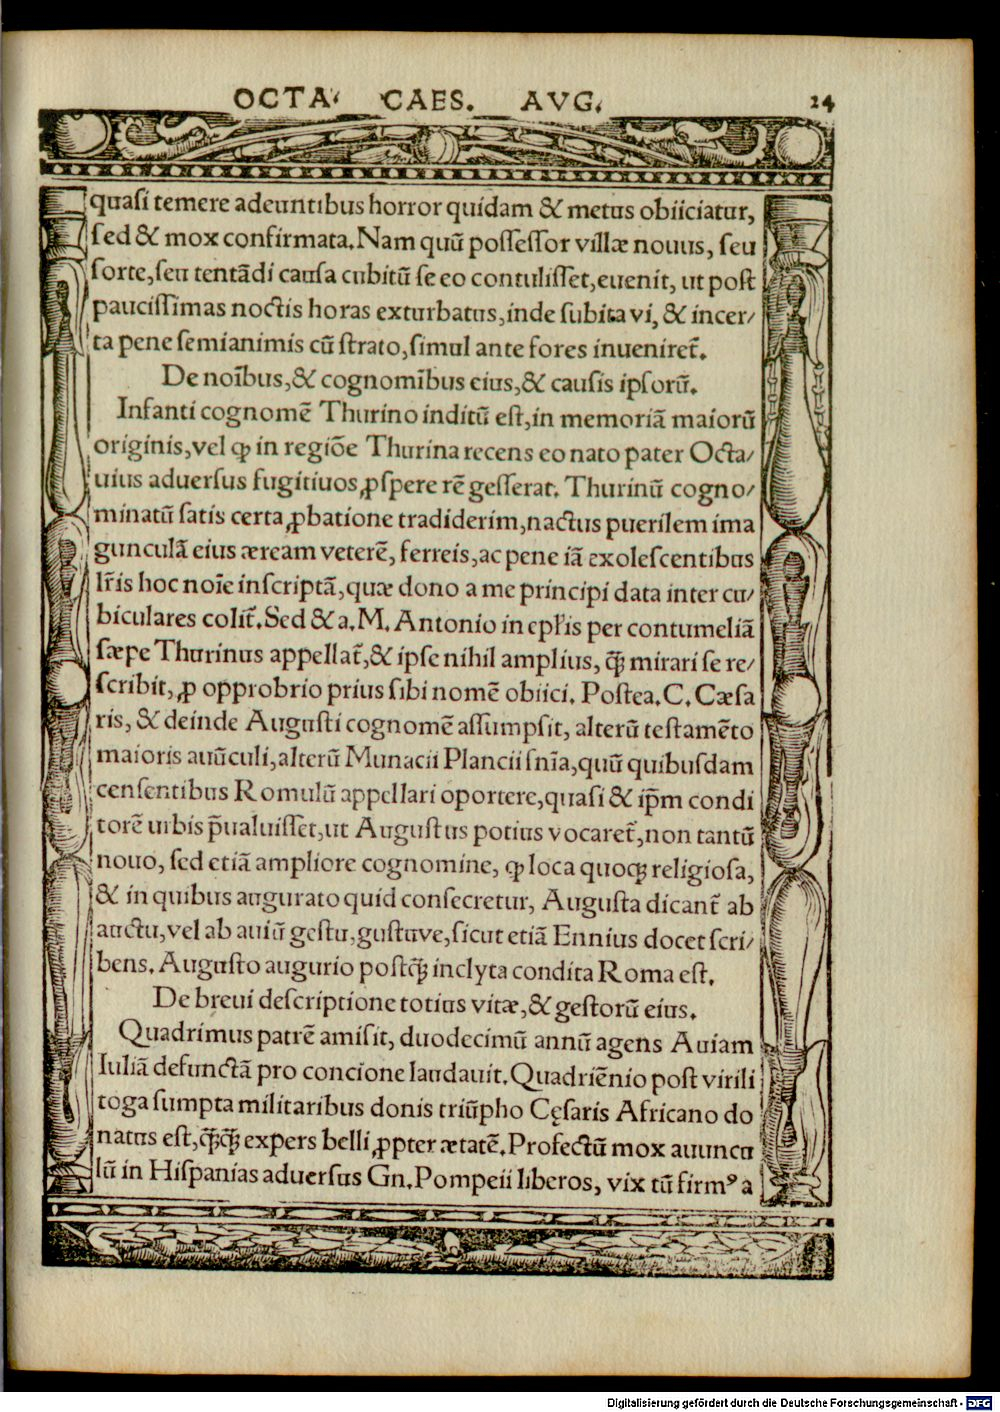 OCTA. CAES. AVG. 24
quasi temere adeuntibus horror quidam & metus obiiciatur,
sed & mox confirmata. Nam quū possessor villæ nouus, seu
sorte, seu tentādi causa cubitū se eo contulisset, euenit, ut post
paucissimas noctis horas exturbatus, inde subita vi, & incer/
ta pene semianimis cū strato, simul ante fores inueniret̄.
De noībus, & cognomībus eius, & causis ipsorū.
Infanti cognomē Thurino inditū est, in memoriā maiorū
originis, vel ꝙ in regiōe Thurina recens eo nato pater Octa/
uius aduersus fugitiuos, ꝓspere rē gesserat. Thurinū cogno/
minatū satis certa ꝓbatione tradiderim, nactus puerilem ima
gunculā eius æream veterē, ferreis, ac pene iā exolescentibus
lr̄is hoc noīe inscriptā, quæ dono a me principi data inter cu/
biculares colit̄. Sed & a. M. Antonio in epl̄is per contumeliā
sæpe Thurinus appellat̄, & ipse nihil amplius, ꝗ̄ mirari se re/
scribit, ꝓ opprobrio prius sibi nomē obiici. Postea. C. Cæsa
ris, & deinde Augusti cognomē assumpsit, alterū testamēto
maioris auūculi, alterū Munacii Plancii snīa, quū quibusdam
censentibus Romulū appellari oportere, quasi & ip̄m condi
torē urbis p̄ualuisset, ut Augustus potius vocaret̄, non tantū
nouo, sed etiā ampliore cognomine, ꝙ loca quoqꝫ religiosa,
& in quibus augurato quid consecretur, Augusta dicant̄ ab
auctu, vel ab auiū gestu, gustuve, sicut etiā Ennius docet scri/
bens. Augusto augurio postꝗ̄ inclyta condita Roma est.
De breui descriptione totius vitæ, & gestorū eius.
Quadrimus patrē amisit, duodecimū annū agens Auiam
Iuliā defunctā pro concione laudauit. Quadriēnio post virili
toga sumpta militaribus donis triūpho Cęsaris Africano do
natus est, ꝗ̄ꝗ̄ expers belli ꝓpter ætatē. Profectū mox auuncu
lū in Hispanias aduersus Gn. Pompeii liberos, vix tū firmꝰ a
Digitalisierung gefördert durch die Deutsche Forschungsgemeinschaft - DFG